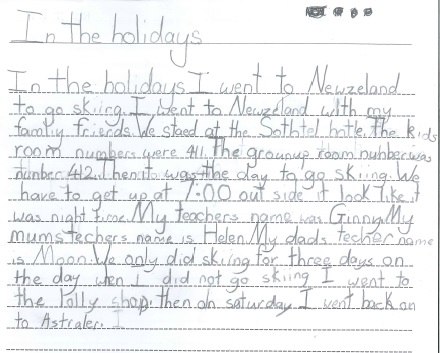 In the holidays
In the holidays I went to Newzeland
to go skiing. I went to Newzeland with my
family friends. We staed at the Sothtel hotle. The kids
room numbers were 411. The grounup room nunber was
nunber 412. Then it was the day to go skiing. We
have to get up at 7:00 out side it look like it
was night time. My teachers name was Ginny. My
mums techers name is Helen. My dads techer name
is Moon. We only did skiing for three days on
the day wen I did not go skiing I went to
the lolly shop. then on saturday I went back on
to Astraler. I